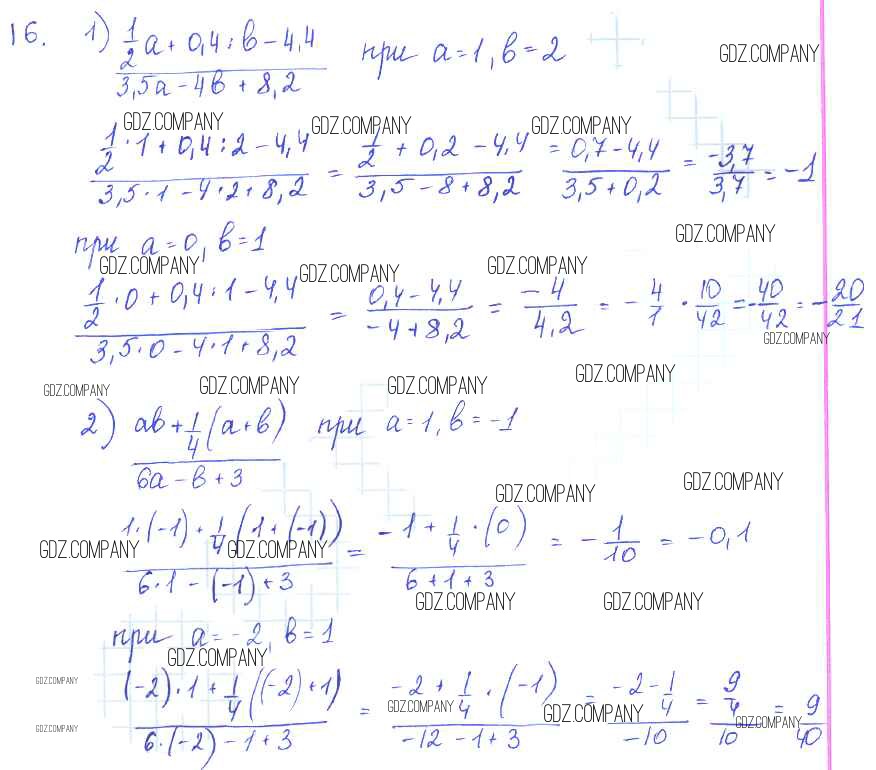 16. 1) (1/2 a + 0,4 : в − 4,4)/(3,5a − 4в + 8,2) при a = 1, в = 2
GDZ.COMPANY
GDZ.COMPANY GDZ.COMPANY GDZ.COMPANY
(1/2 · 1 + 0,4 : 2 − 4,4)/(3,5 · 1 − 4 · 2 + 8,2) = (1/2 + 0,2 − 4,4)/(3,5 − 8 + 8,2) = (0,7 − 4,4)/(3,5 + 0,2) = (−3,7)/(3,7) = −1
при a = 0, в = 1
GDZ.COMPANY
GDZ.COMPANY GDZ.COMPANY GDZ.COMPANY
(1/2 · 0 + 0,4 : 1 − 4,4)/(3,5 · 0 − 4 · 1 + 8,2) = (0,4 − 4,4)/(−4 + 8,2) = (−4)/(4,2) = −4/1 · 10/42 = −40/42 = −20/21
GDZ.COMPANY
GDZ.COMPANY GDZ.COMPANY GDZ.COMPANY GDZ.COMPANY
2) (aв + 1/4 (a + в))/(6a − в + 3) при a = 1, в = −1
GDZ.COMPANY GDZ.COMPANY
(1 · (−1) + 1/4 (1 + (−1)))/(6 · 1 − (−1) + 3) = (−1 + 1/4 · (0))/(6 + 1 + 3) = −1/10 = −0,1
GDZ.COMPANY GDZ.COMPANY
GDZ.COMPANY GDZ.COMPANY
при a = −2, в = 1
GDZ.COMPANY
GDZ.COMPANY
((−2) · 1 + 1/4 ((−2) + 1))/(6 · (−2) − 1 + 3) = (−2 + 1/4 · (−1))/(−12 − 1 + 3) = (−2 − 1/4)/(−10) = (9/4)/10 = 9/40
GDZ.COMPANY GDZ.COMPANY GDZ.COMPANY GDZ.COMPANY